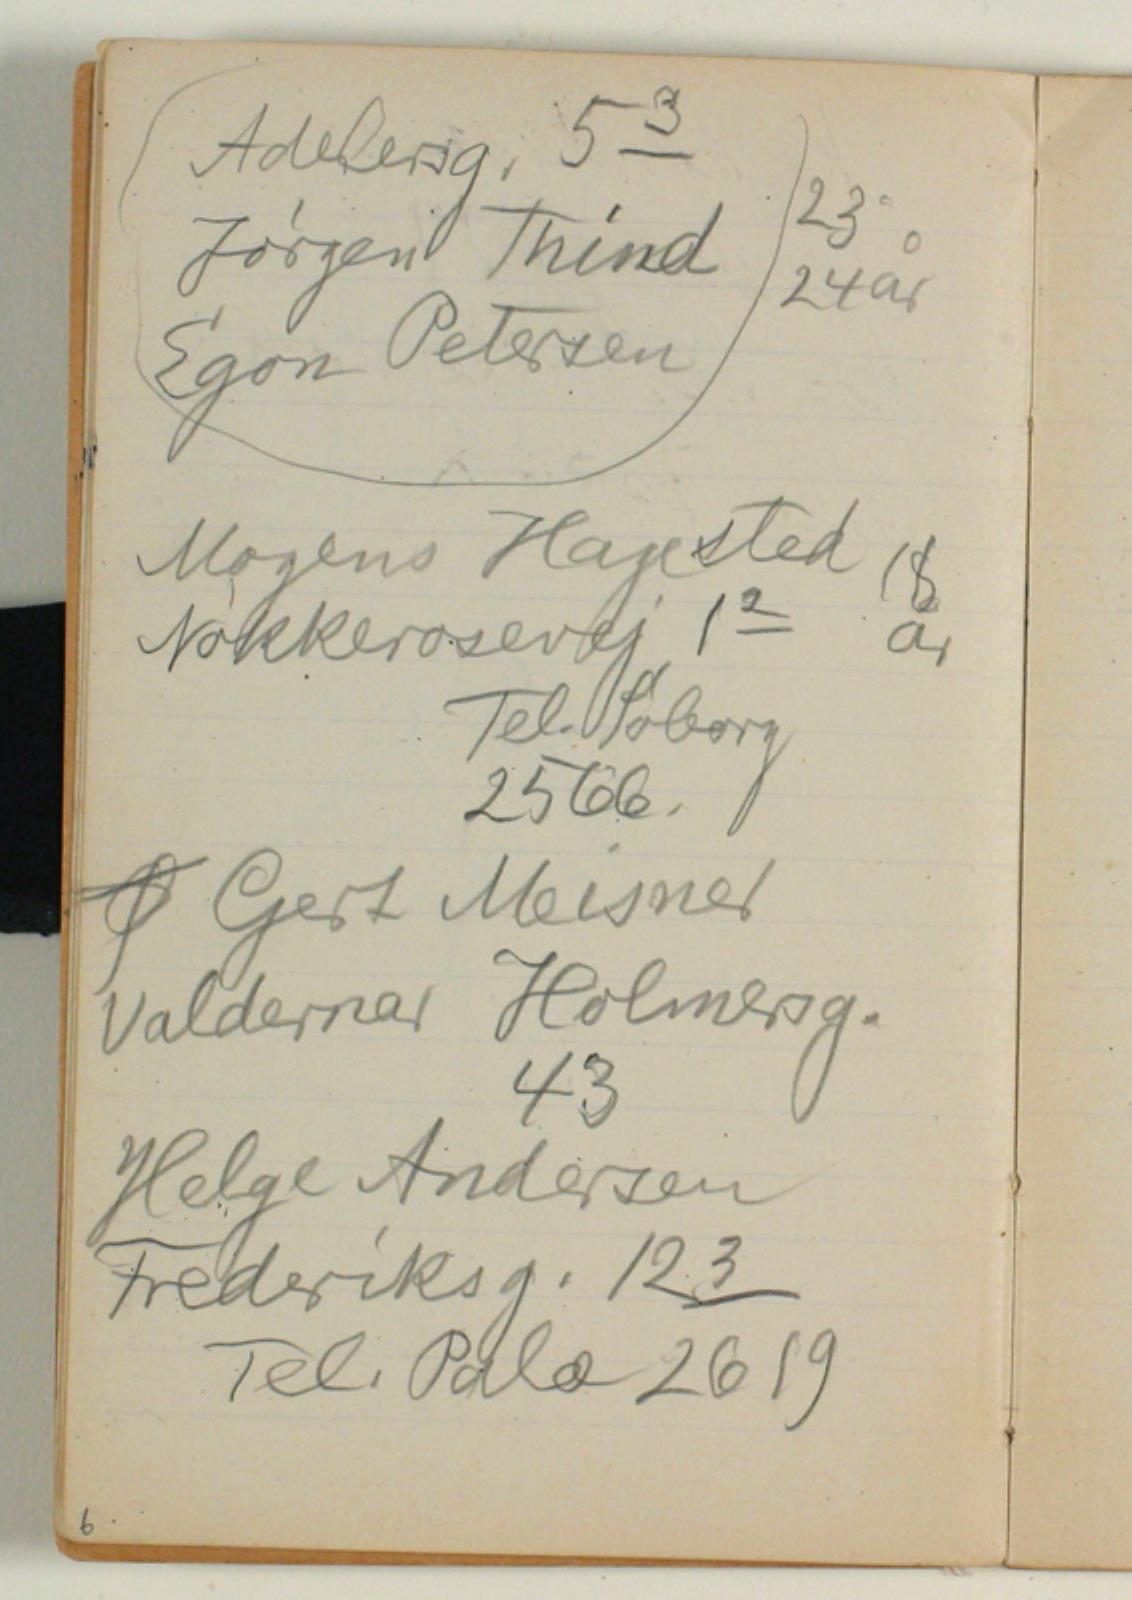 Adelersg. 5 3
Jørgen Thind
Egon Petersen
23
24 år
Mogens Hagested 18
Nøkkerosevej 1 2 år
Tel. Søborg
2566.
Gert Meisner
Valdemar Holmersg.
43
Helge Andersen
Frederiksg. 12 3
Tel. Palæ 2619
6